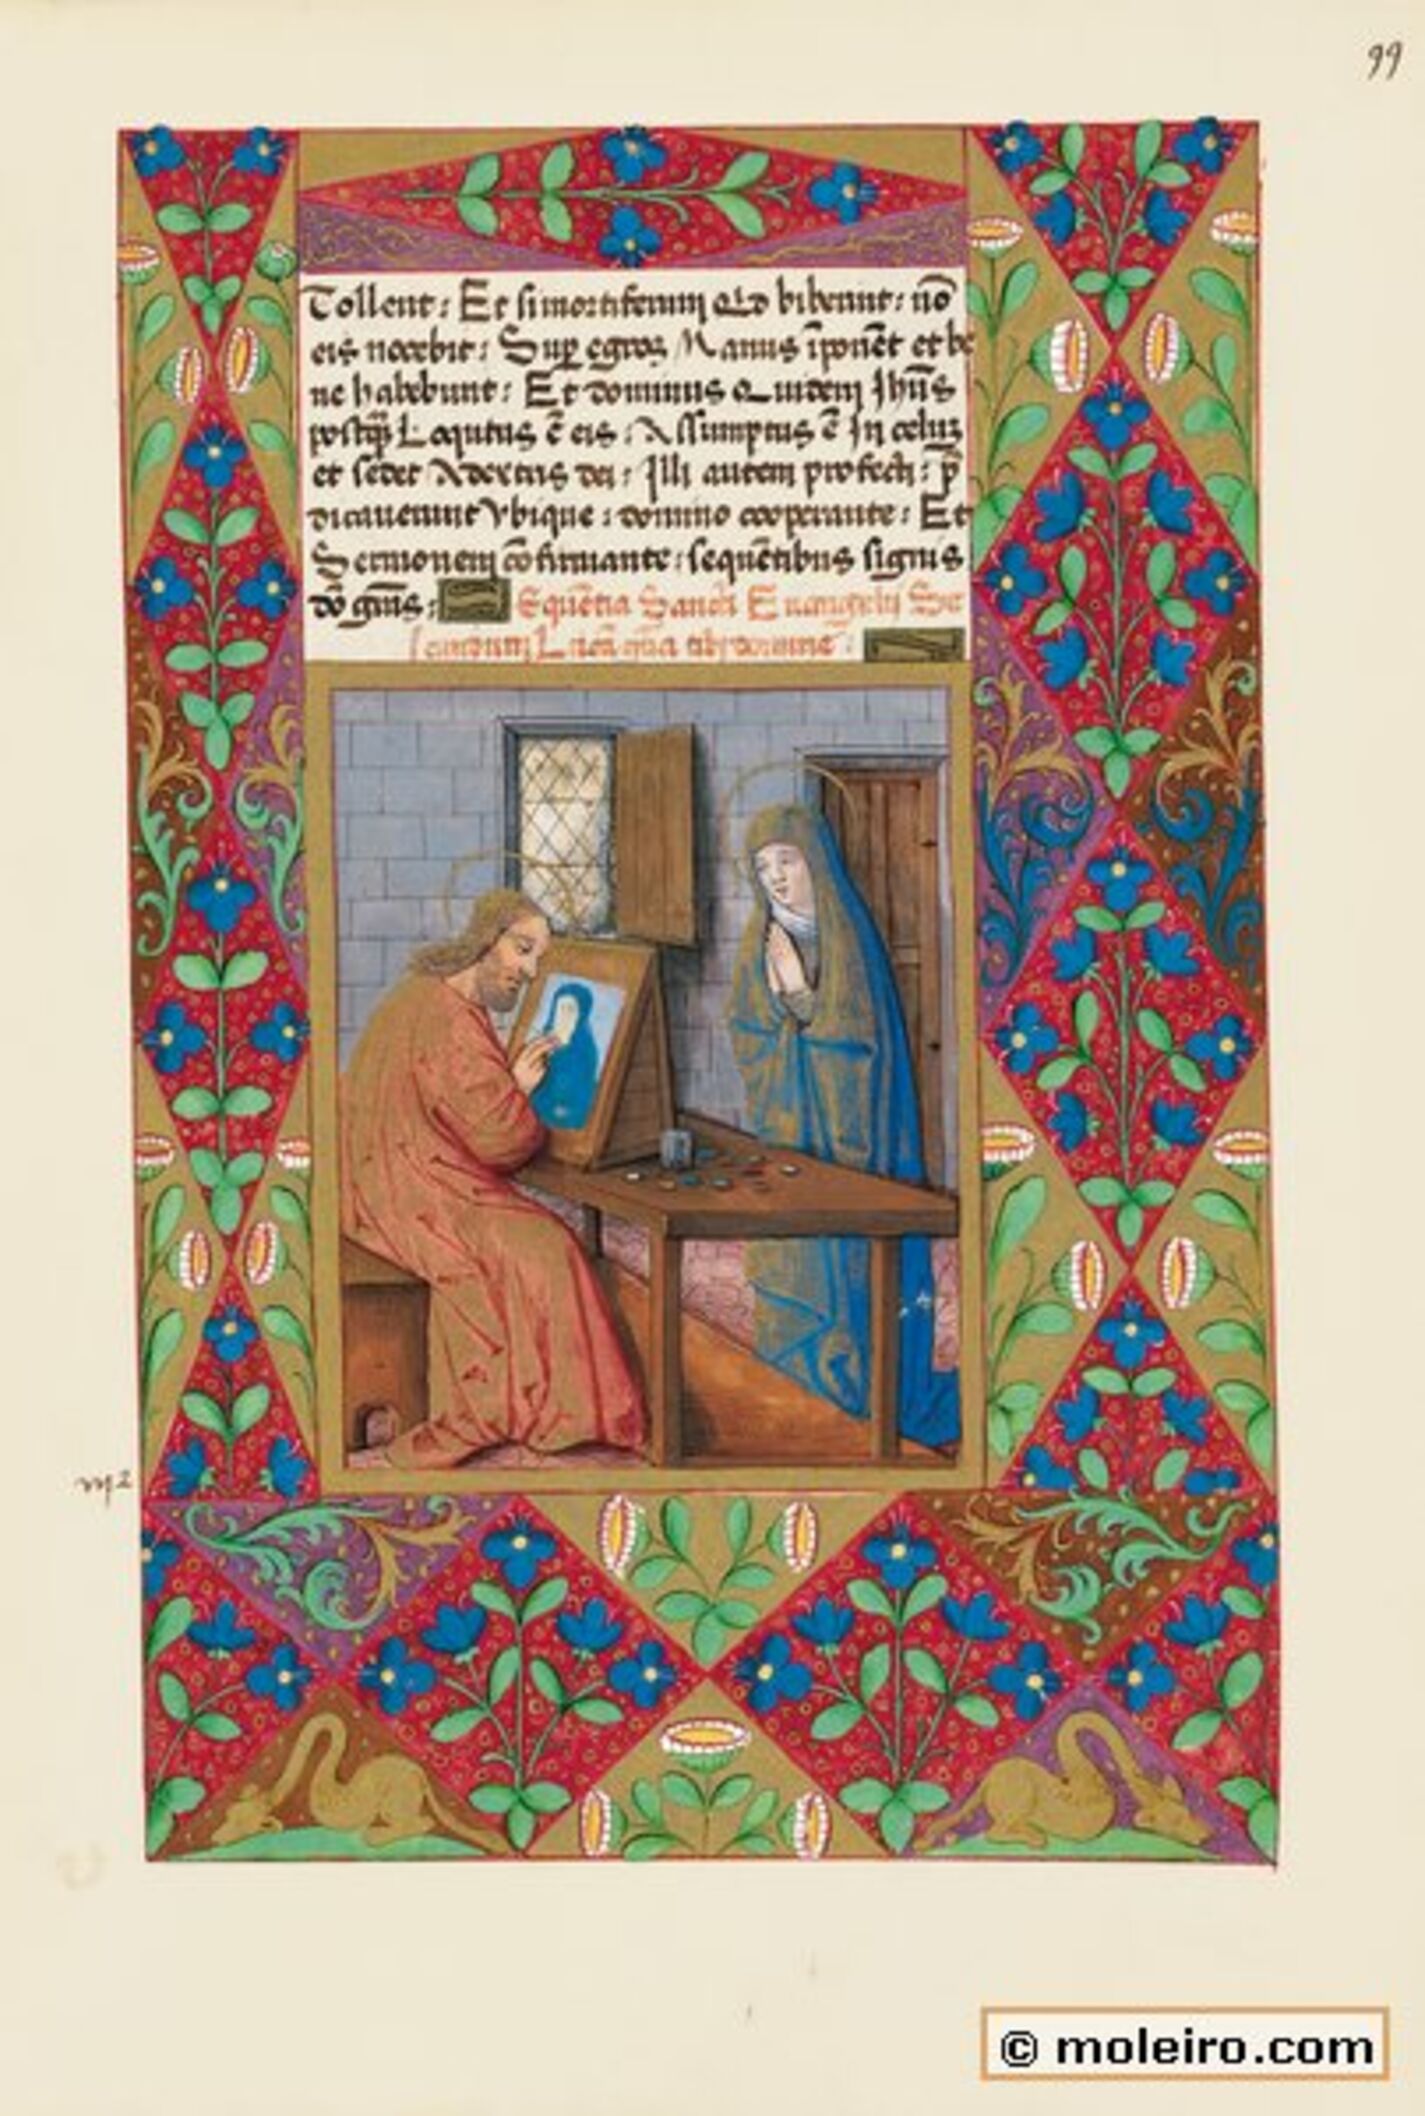 99
Tollent: Et si mortiferum qd biberint: nō
eis nocebit: Sup egros Manus īponēt et be
ne habebunt: Et dominus Quidem Jhūs
postq̄ Loqutus ē eis: Assumptus ē In celum
et sedet Adextris dei: Illi autem profecti: p̄
dicauerunt Vbique: domino cooperante: Et
Sermonem cōfirmante: sequētibus signis
Sequētia Sancti Euangelij Se
cundum Lucā
© moleiro.com